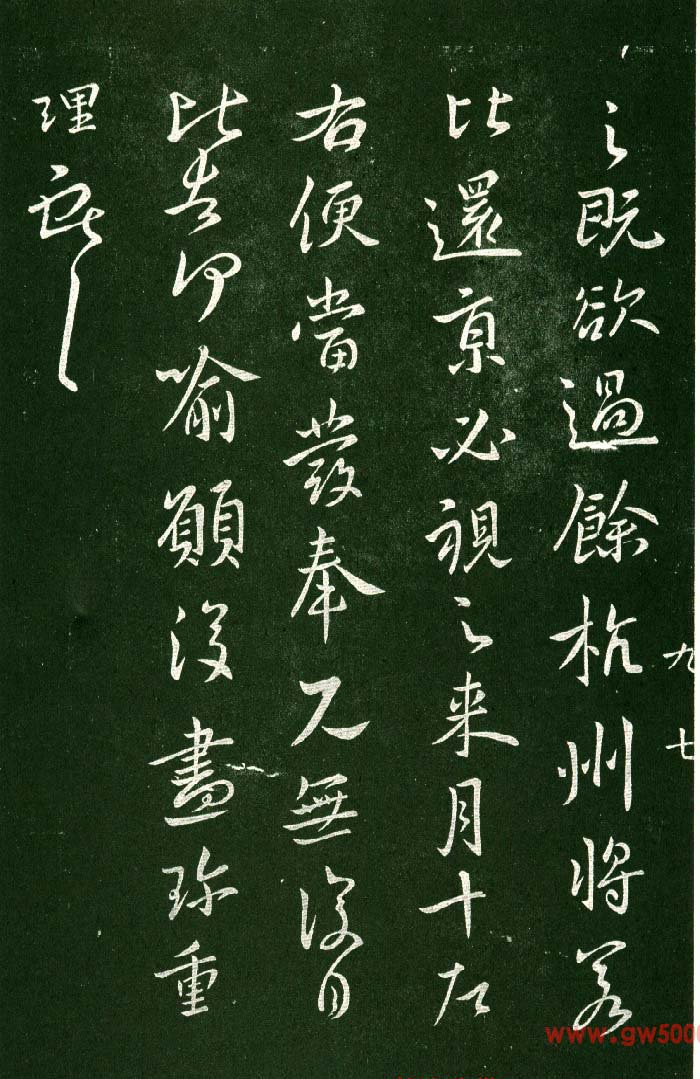 之既欲過餘杭州將若
比還京必視之來月十左
右便當發奉見無復日
比告何喻願復盡珍重
理
九七
www.gw500